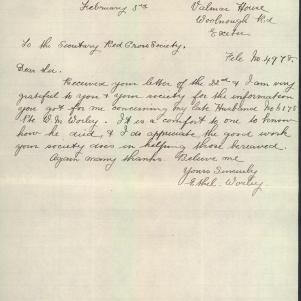 February 5th Valmar House
Woolnough Rd
Exeter
To the Secretary Red Cross Society.
File No 4978.
Dear Sir.
Received your letter of the 22nd & I am very
grateful to you & your society for the information
you got for me concerning my late Husband No 6178
Pte W. M. Worley. It is a comfort to one to know
how he died, & I do appreciate the good work
your society does in helping those bereaved.
Again many thanks. Believe me
Yours Sincerely
Ethel. Worley